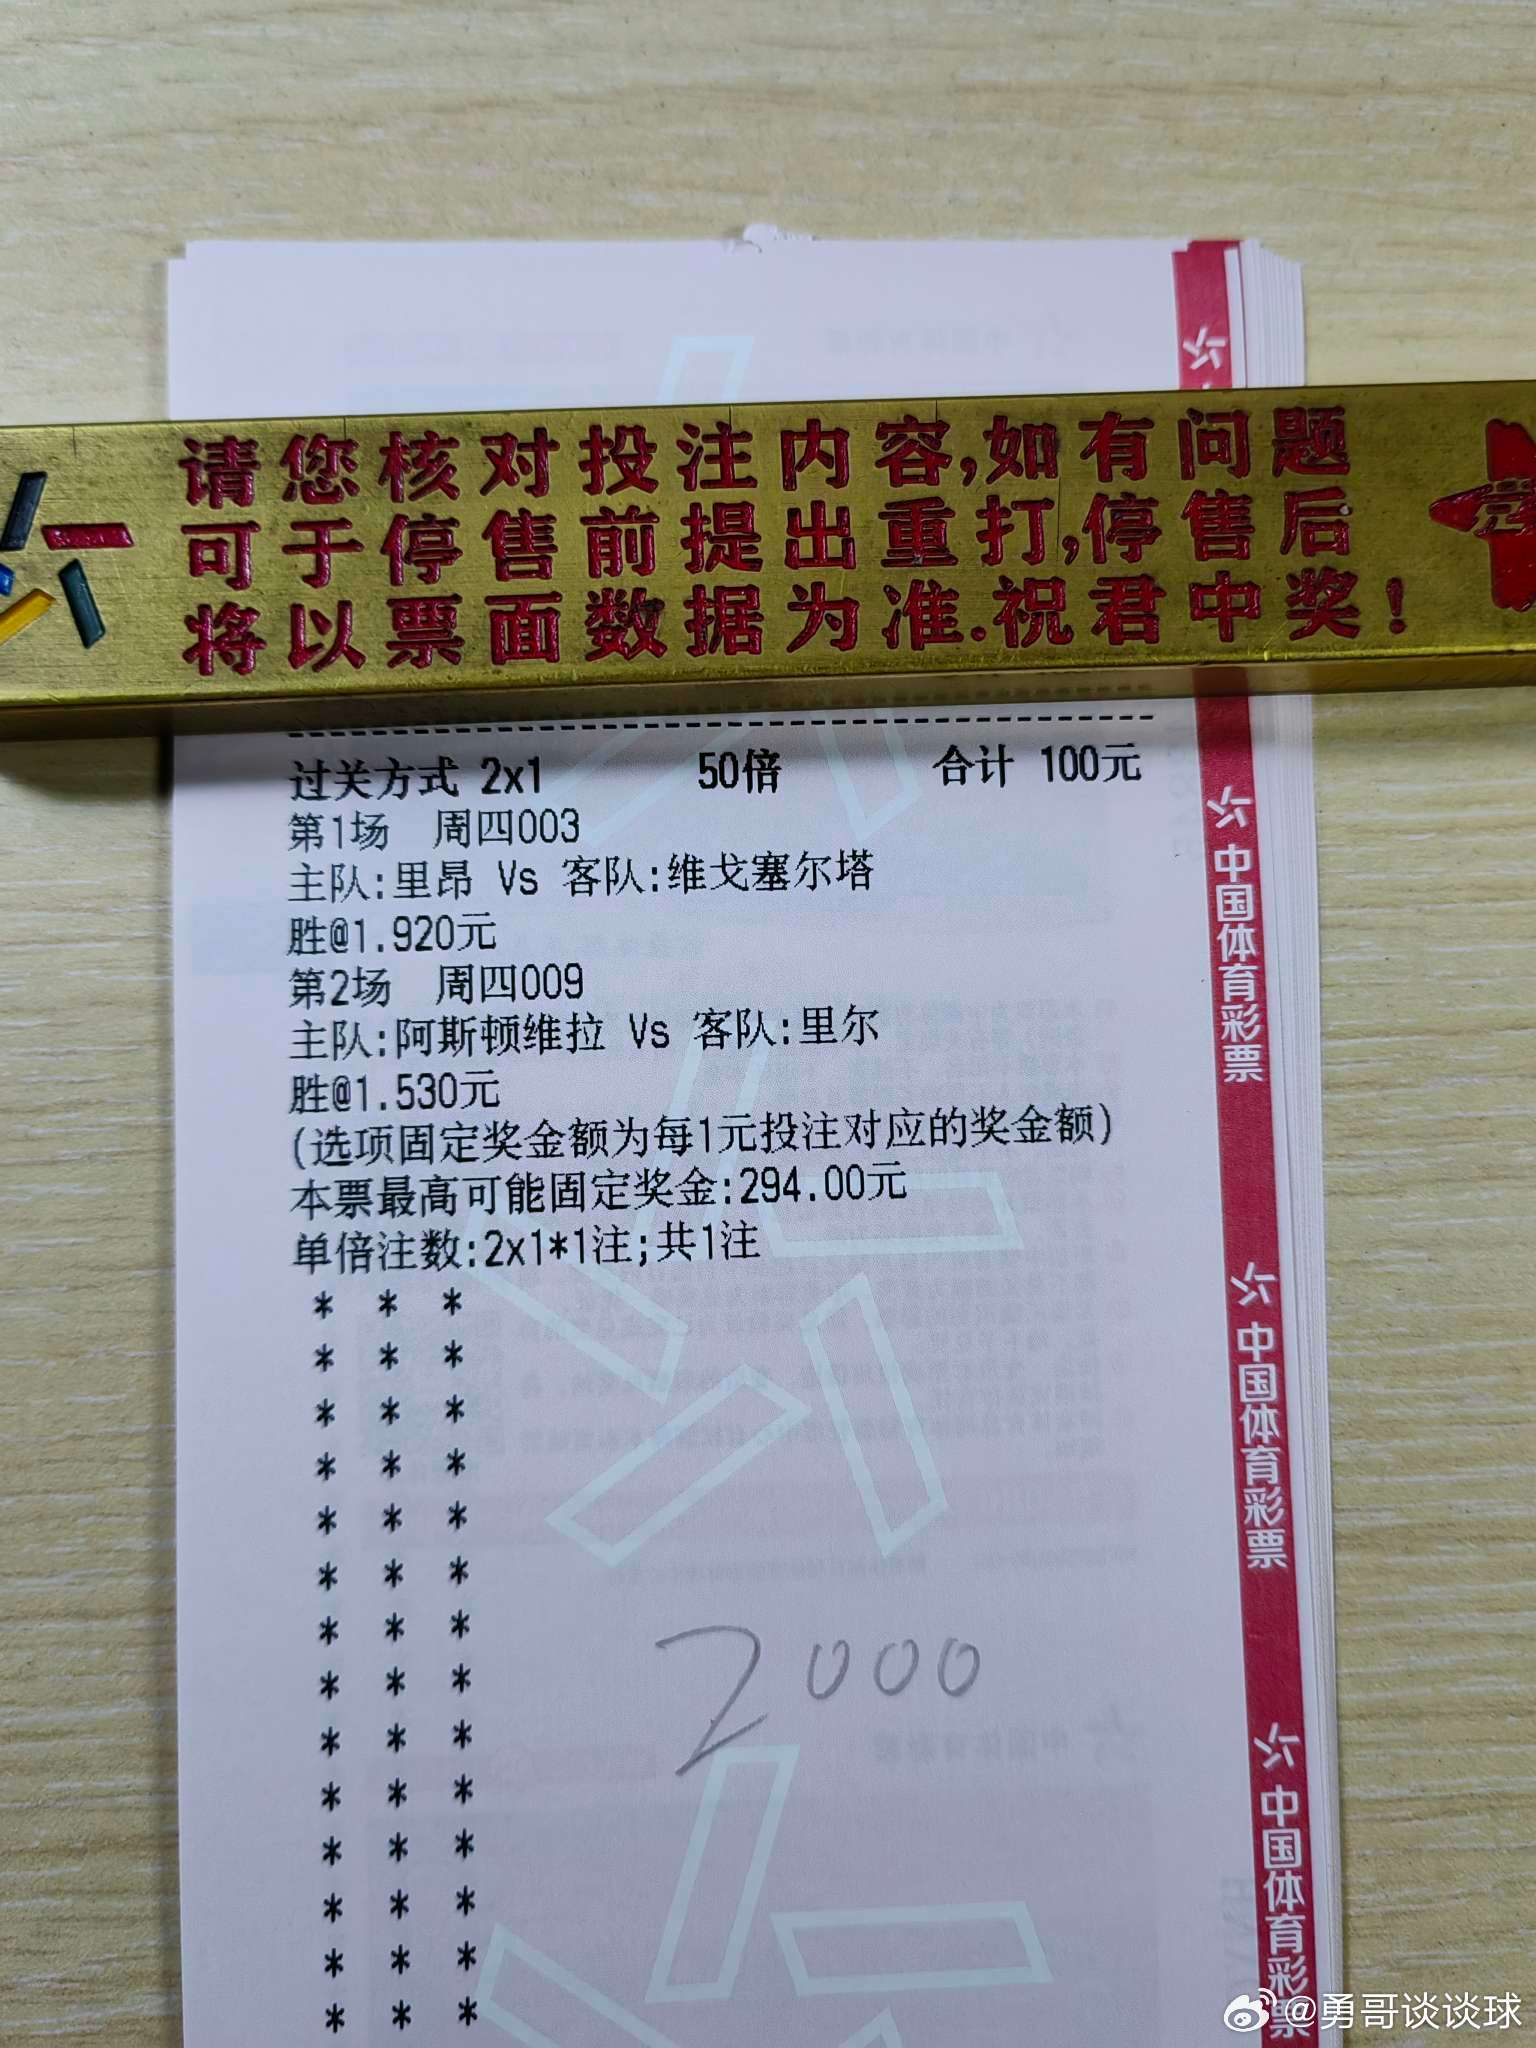 请您核对投注内容,如有问题
可于停售前提出重打,停售后
将以票面数据为准.祝君中奖!
过关方式 2x1 50倍 合计 100元
第1场 周四003
主队:里昂 Vs 客队:维戈塞尔塔
胜@1.920元
第2场 周四009
主队:阿斯顿维拉 Vs 客队:里尔
胜@1.530元
(选项固定奖金额为每1元投注对应的奖金额)
本票最高可能固定奖金:294.00元
单倍注数:2x1*1注;共1注
* * *
* * *
* * *
* * *
* * *
* * *
* * *
* * *
* * *
* * *
* * *
* * *
* * *
* * *
2000
中国体育彩票
中国体育彩票
中国体育彩票
@勇哥谈谈球